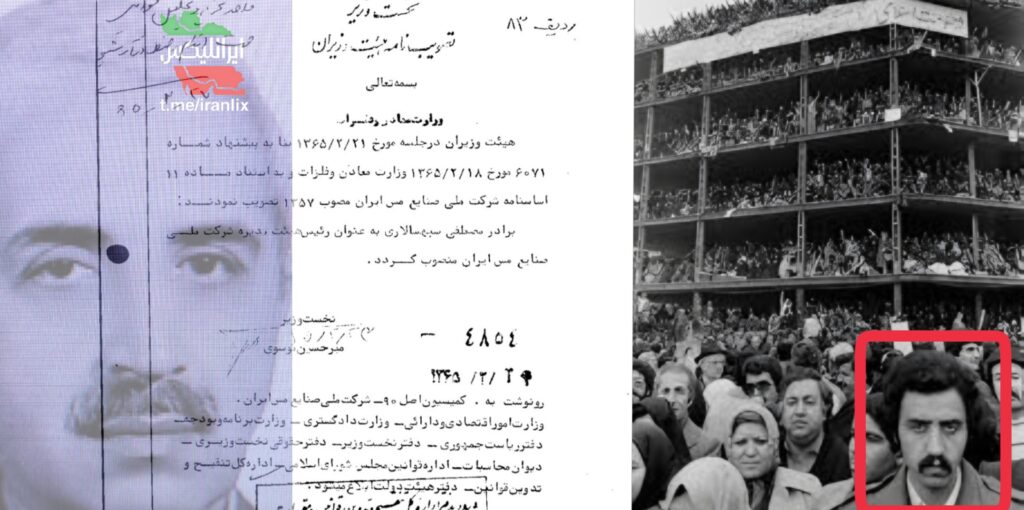 ایرانلیکس
t.me/iranlix
ردیف ۸۳
نخست وزیر
تصویب نامه هیئت وزیران
بسمه تعالی
وزارت معادن و فلزات
هیئت وزیران درجلسه مورخ ۱۳۶۵/۲/۲۱ بنا به پیشنهاد شماره
۶۰۷۱ مورخ ۱۳۶۵/۲/۱۸ وزارت معادن وفلزات و به استناد مــاده ۱۱
اساسنامه شرکت ملی صنایع مس ایران مصوب ۱۳۵۷ تصویب نمودنــد :
برادر مصطفی سپهسالاری به عنوان رئیس هیئت مدیره شرکت ملــی
صنایع مس ایران منصوب گــردد .
نخست وزیر
میرحسین موسوی
۴۸۵۴ –
رونوشت به . کمیسیون اصل ۹۰ــ شرکت ملی صنایع مس ایران .
وزارت امور اقتصادی و دارائی ــ وزارت دادگستری ــ وزارت برنامه وبودجه ــ
دفتر ریاست جمهوری ــ دفتر نخست وزیر ــ دفتر حقوقی نخست وزیــری ــ
دیوان محاسبات ــ اداره قوانین مجلس شورای اسلامی ــ اداره کل تنقیــح و
تدوین قوانین ــ دفتر هیئت دولت ابلاغ میشود .